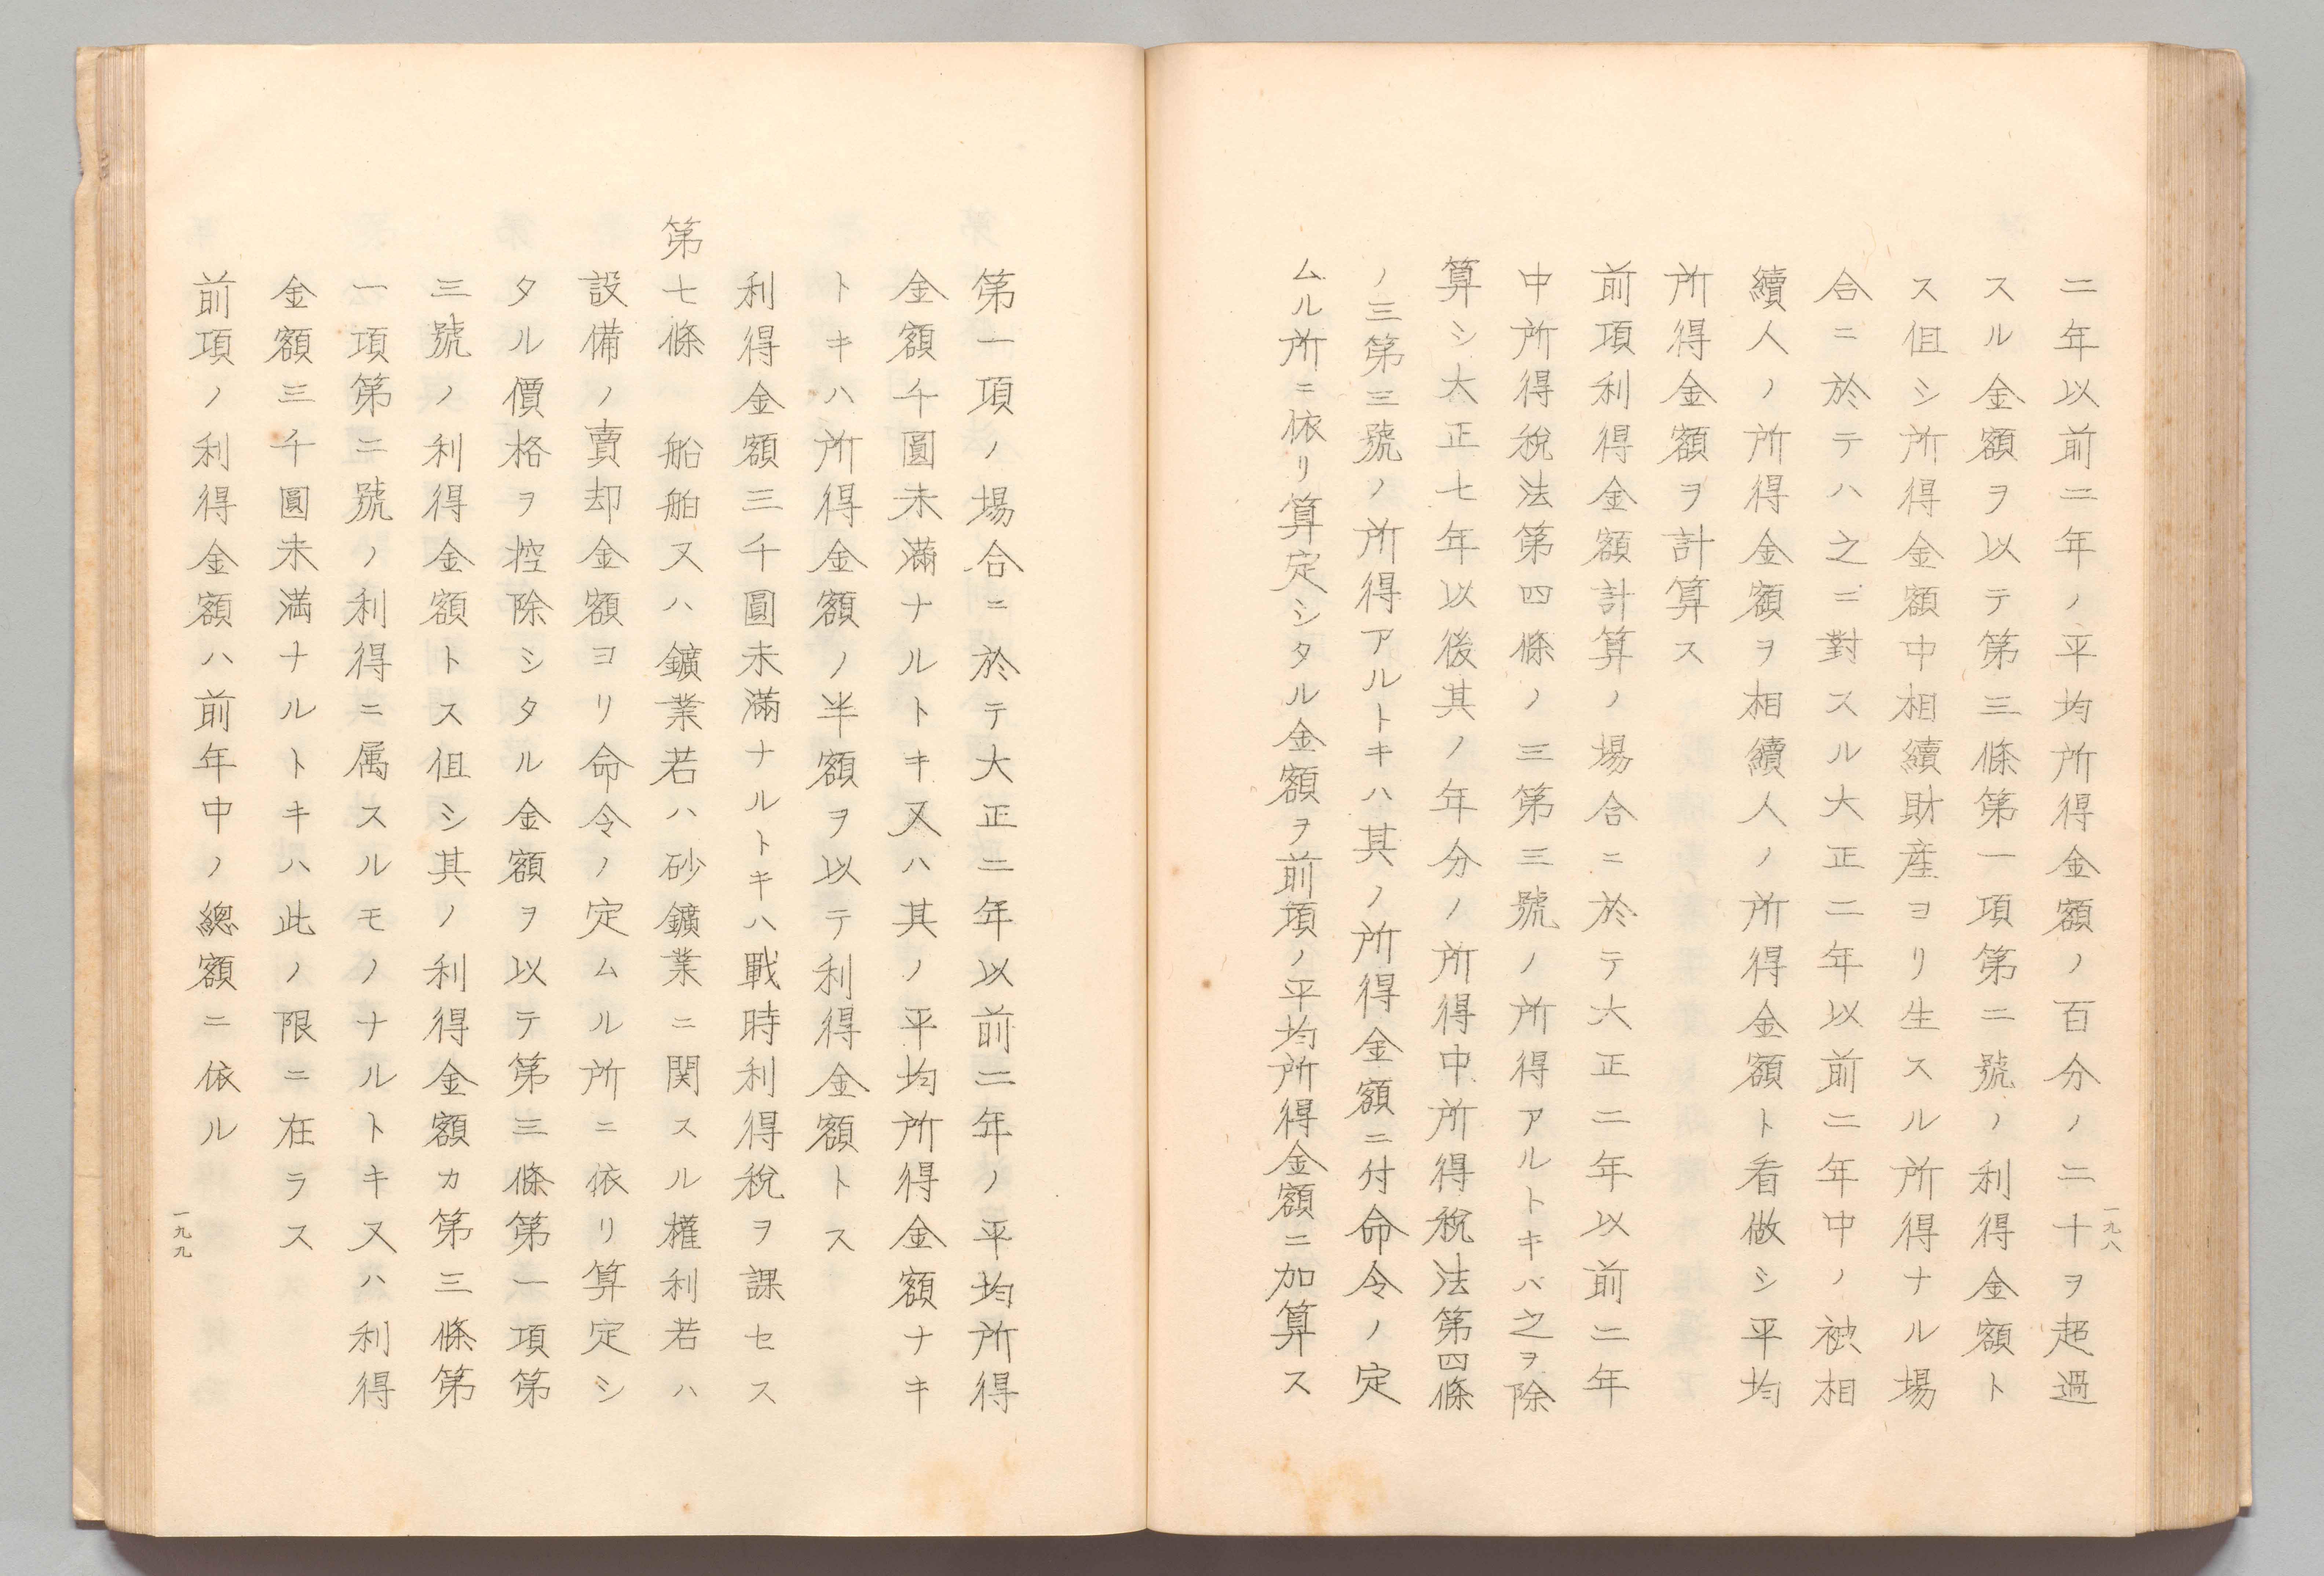 二年以前二年ノ平均所得金額ノ百分ノ二十ヲ超過
スル金額ヲ以テ第三條第一項第二號ノ利得金額ト
ス但シ所得金額中相續財産ヨリ生スル所得ナル場
合ニ於テハ之ニ對スル大正二年以前二年中ノ被相
續人ノ所得金額ヲ相續人ノ所得金額ト看做シ平均
所得金額ヲ計算ス
前項利得金額計算ノ場合ニ於テ大正二年以前二年
中所得税法第四條ノ三第三號ノ所得アルトキバ之ヲ除
算シ大正七年以後其ノ年分ノ所得中所得税法第四條
ノ三第三號ノ所得アルトキハ其ノ所得金額ニ付命令ノ定
ムル所ニ依リ算定シタル金額ヲ前項ノ平均所得金額ニ加算ス
一九八
第一項ノ場合ニ於テ大正二年以前二年ノ平均所得
金額千圓未滿ナルトキ又ハ其ノ平均所得金額ナキ
トキハ所得金額ノ半額ヲ以テ利得金額トス
利得金額三千圓未滿ナルトキハ戰時利得税ヲ課セス
第七條　船舶又ハ鑛業若ハ砂鑛業ニ関スル權利若ハ
設備ノ賣却金額ヨリ命令ノ定ムル所ニ依リ算定シ
タル價格ヲ控除シタル金額ヲ以テ第三條第一項第
三號ノ利得金額トス但シ其ノ利得金額カ第三條第
一項第二號ノ利得ニ属スルモノナルトキ又ハ利得
金額三千圓未満ナルトキハ此ノ限ニ在ラス
前項ノ利得金額ハ前年中ノ總額ニ依ル
一九九